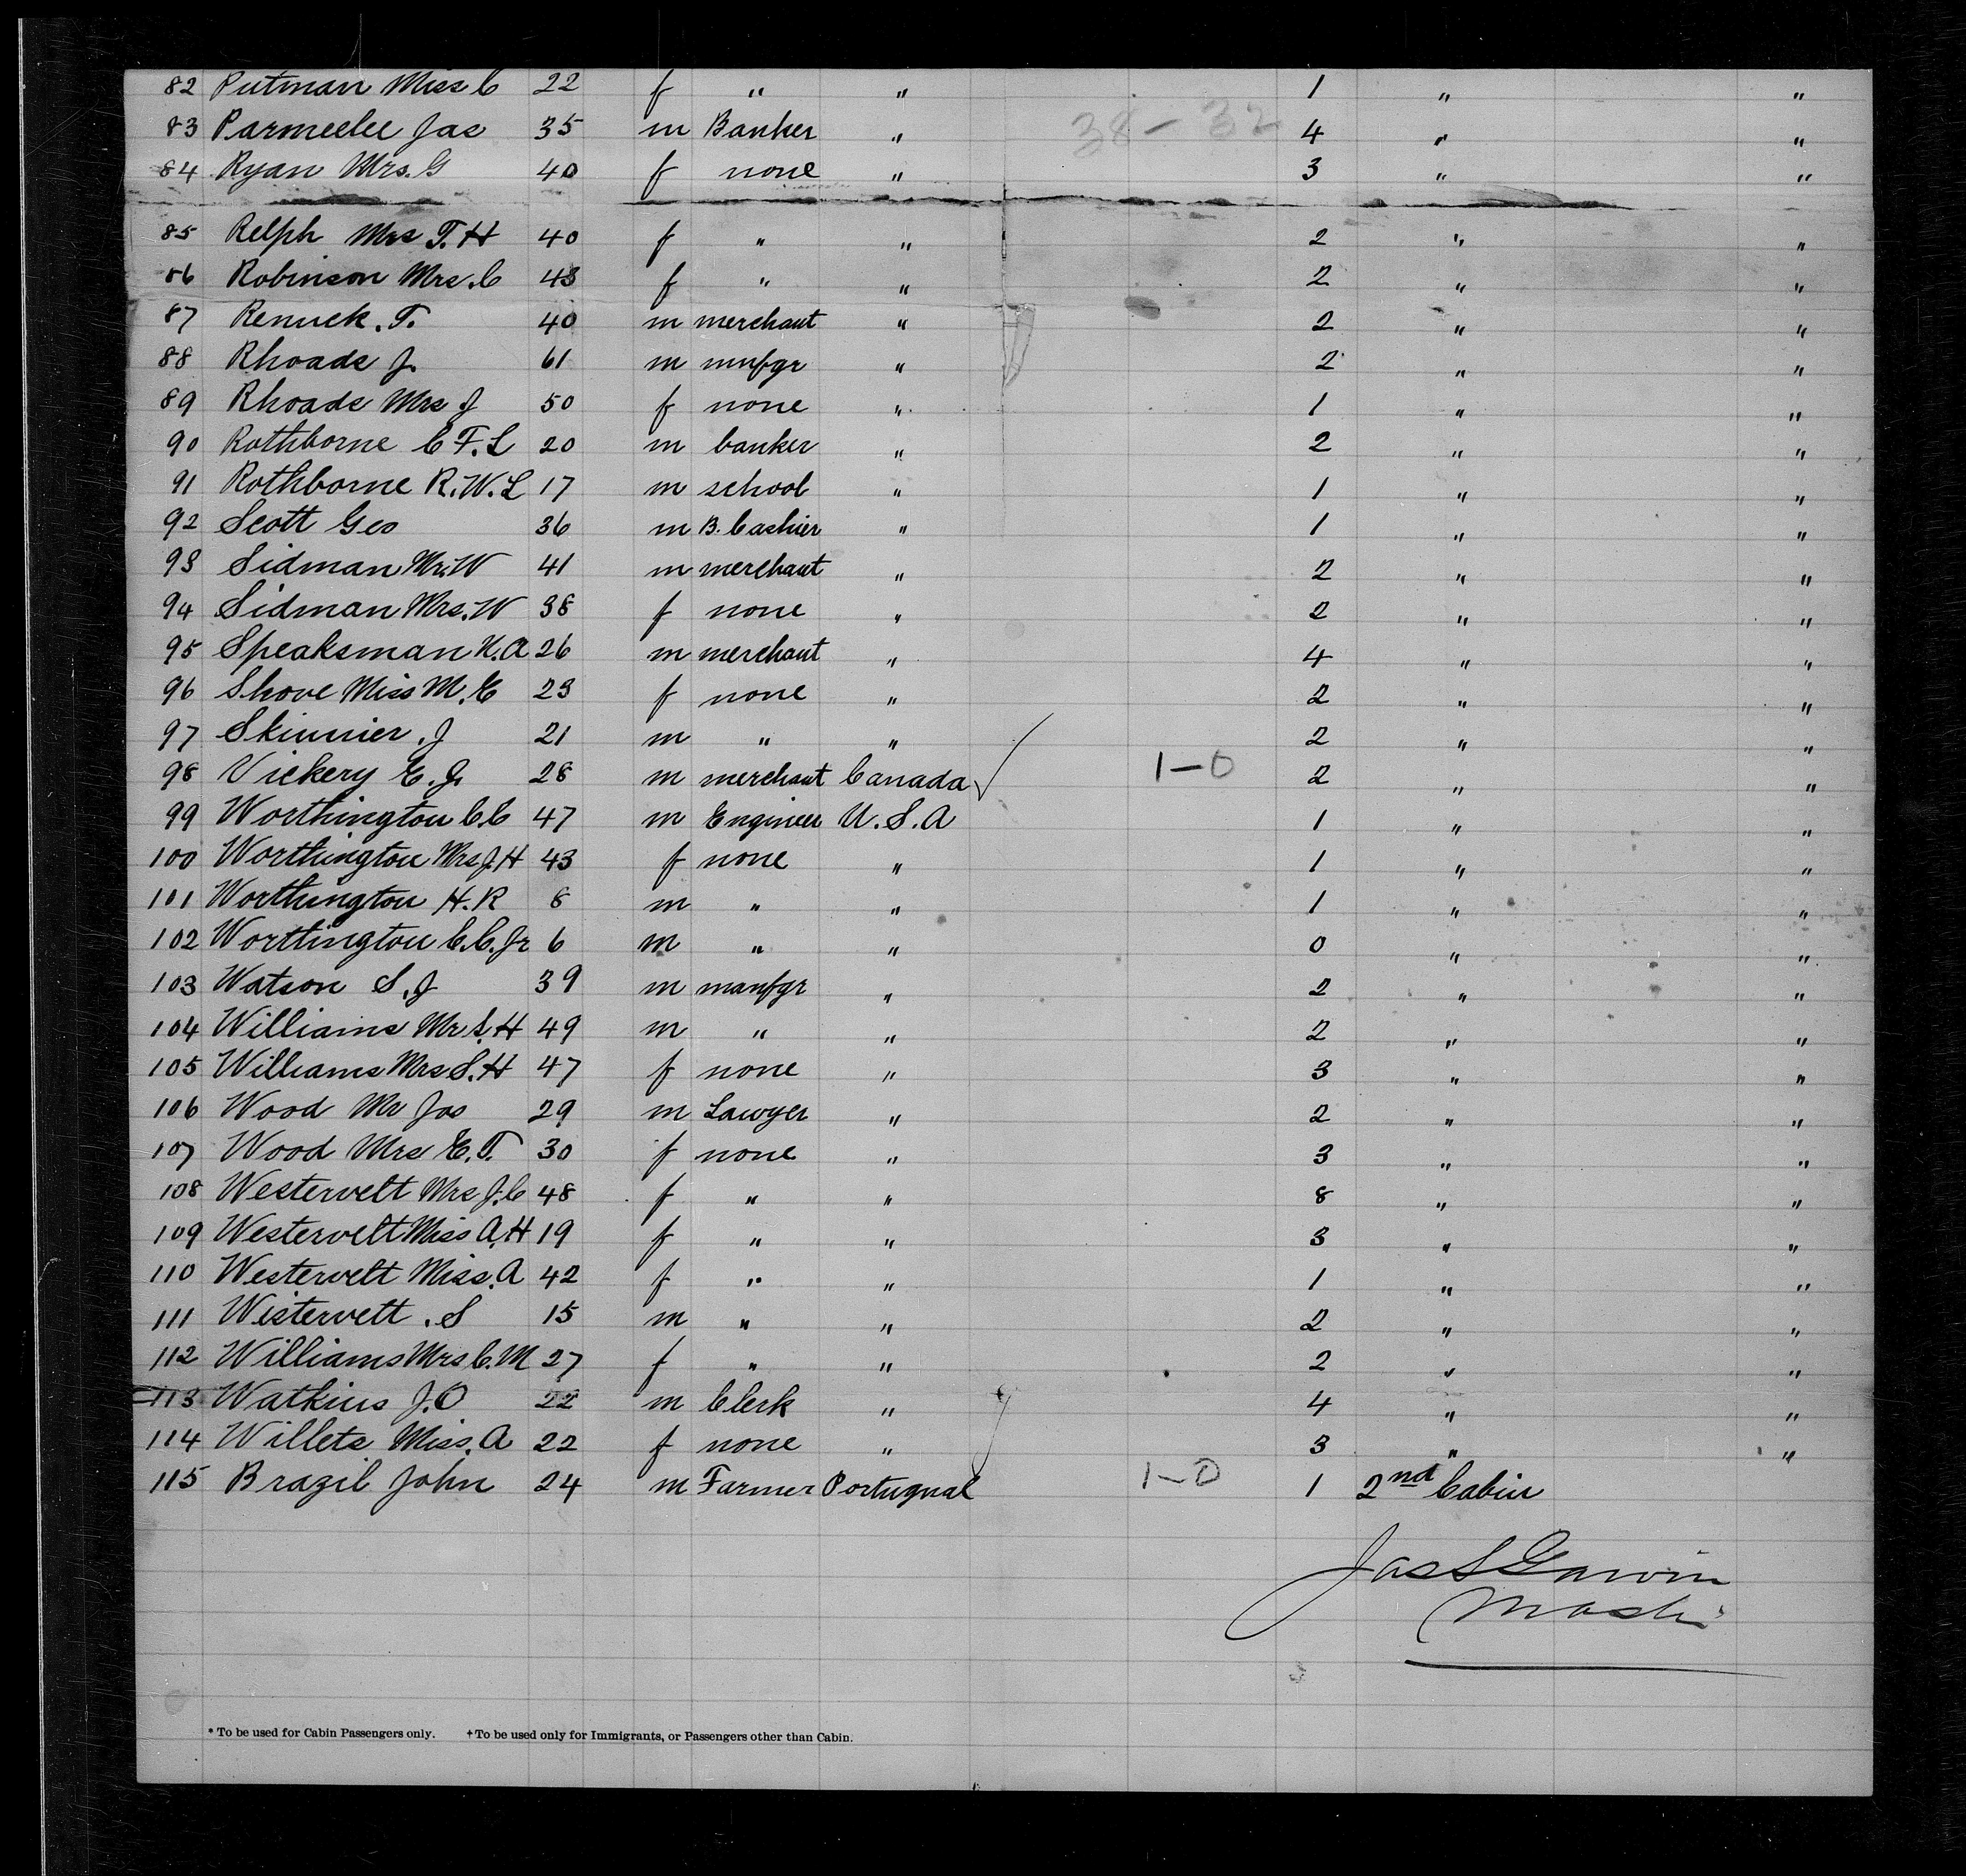 82 Putman Miss C 22 f " " 1 " "
83 Parmeelee Jas 35 m Banker " 38-32 4 " "
84 Ryan Mrs. G 40 f none " 3 " "
85 Relph Mrs T. H 40 f " " 2 " "
86 Robinson Mrs. C 43 f " " 2 " "
87 Renuck. T. 40 m merchant " 2 " "
88 Rhoads J. 61 m mnfgr " 2 " "
89 Rhoads Mrs J 50 f none " 1 " "
90 Rothborne C F. L 20 m banker " 2 " "
91 Rothborne R. W. L 17 m school " 1 " "
92 Scott Geo 36 m B. Cashier " 1 " "
93 Sidman Mr. W 41 m merchant " 2 " "
94 Sidman Mrs. W 38 f none " 2 " "
95 Speaksman H. A 26 m merchant " 4 " "
96 Shove Miss M. E 23 f none " 2 " "
97 Skinnier . J 21 m " " 2 " "
98 Vickery E. G. 28 m merchant Canada ✓ 1-0 2 " "
99 Worthington C. C 47 m Engineer U. S. A 1 " "
100 Worthington Mrs J. H 43 f none " 1 " "
101 Worthington H. R 8 m " " 1 " "
102 Worthington C. C. Jr 6 m " " 0 " "
103 Watson S. J 39 m manfgr " 2 " "
104 Williams Mr S. H 49 m " " 2 " "
105 Williams Mrs S. H 47 f none " 3 " "
106 Wood Mr Jos 29 m Lawyer " 2 " "
107 Wood Mrs E. T. 30 f none " 3 " "
108 Westervelt Mrs J. C 48 f " " 8 " "
109 Westervelt Miss A. H 19 f " " 3 " "
110 Westervelt Miss. A 42 f " " 1 " "
111 Wistervelt . S 15 m " " 2 " "
112 Williams Mrs C. M 27 f " " 2 " "
113 Watkins J. O 22 m Clerk " 4 " "
114 Willets Miss. A 22 f none " 3 " "
115 Brazil John 24 m Farmer Portugual 1-0 1 2nd Cabin
Jas S Garvin
* To be used for Cabin Passengers only. †To be used only for Immigrants, or Passengers other than Cabin.